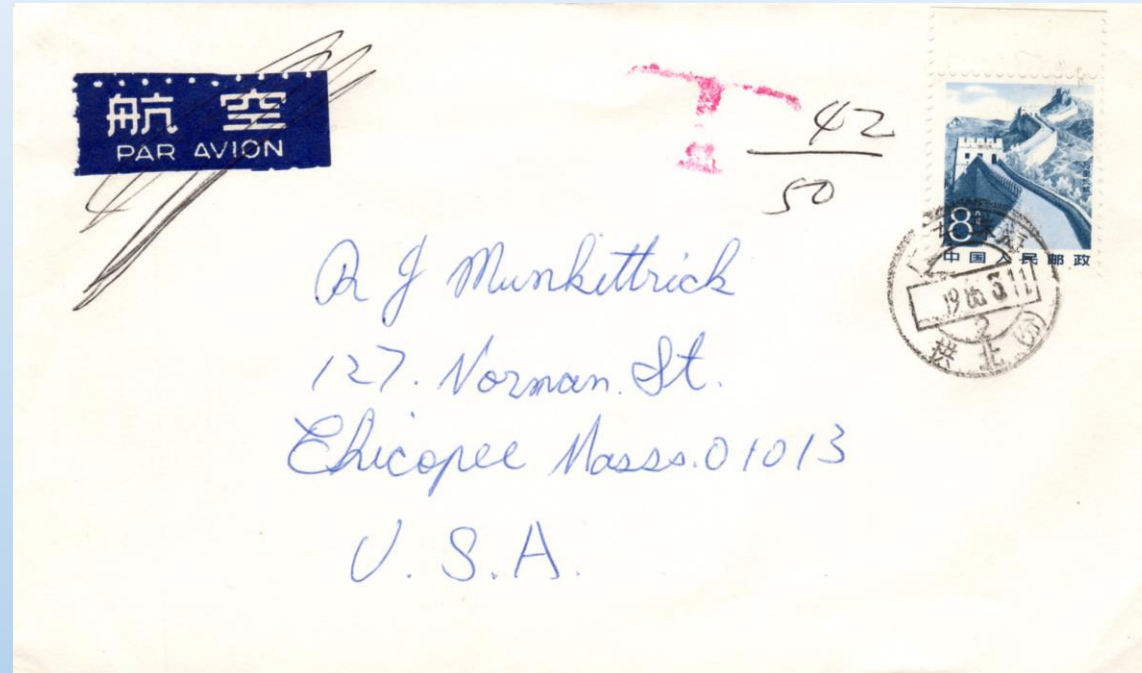 航空
PAR AVION
T 42
50
8
中国人民邮政
R J Munkittrick
127. Norman. St.
Chicopee Masss. 01013
U.S.A.
拱北